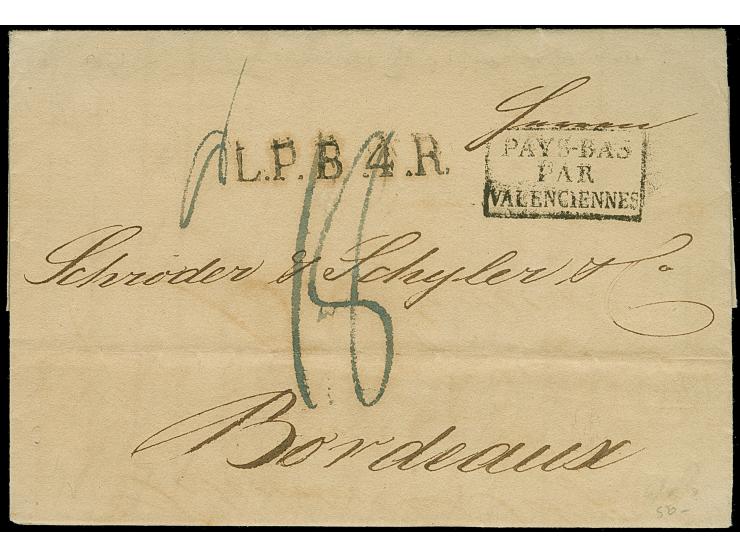 Herren
L.P.B.4.R.
PAYS-BAS
PAR
VALENCIENNES
16
Schröder & Schyler & Co
Bordeaux
50-